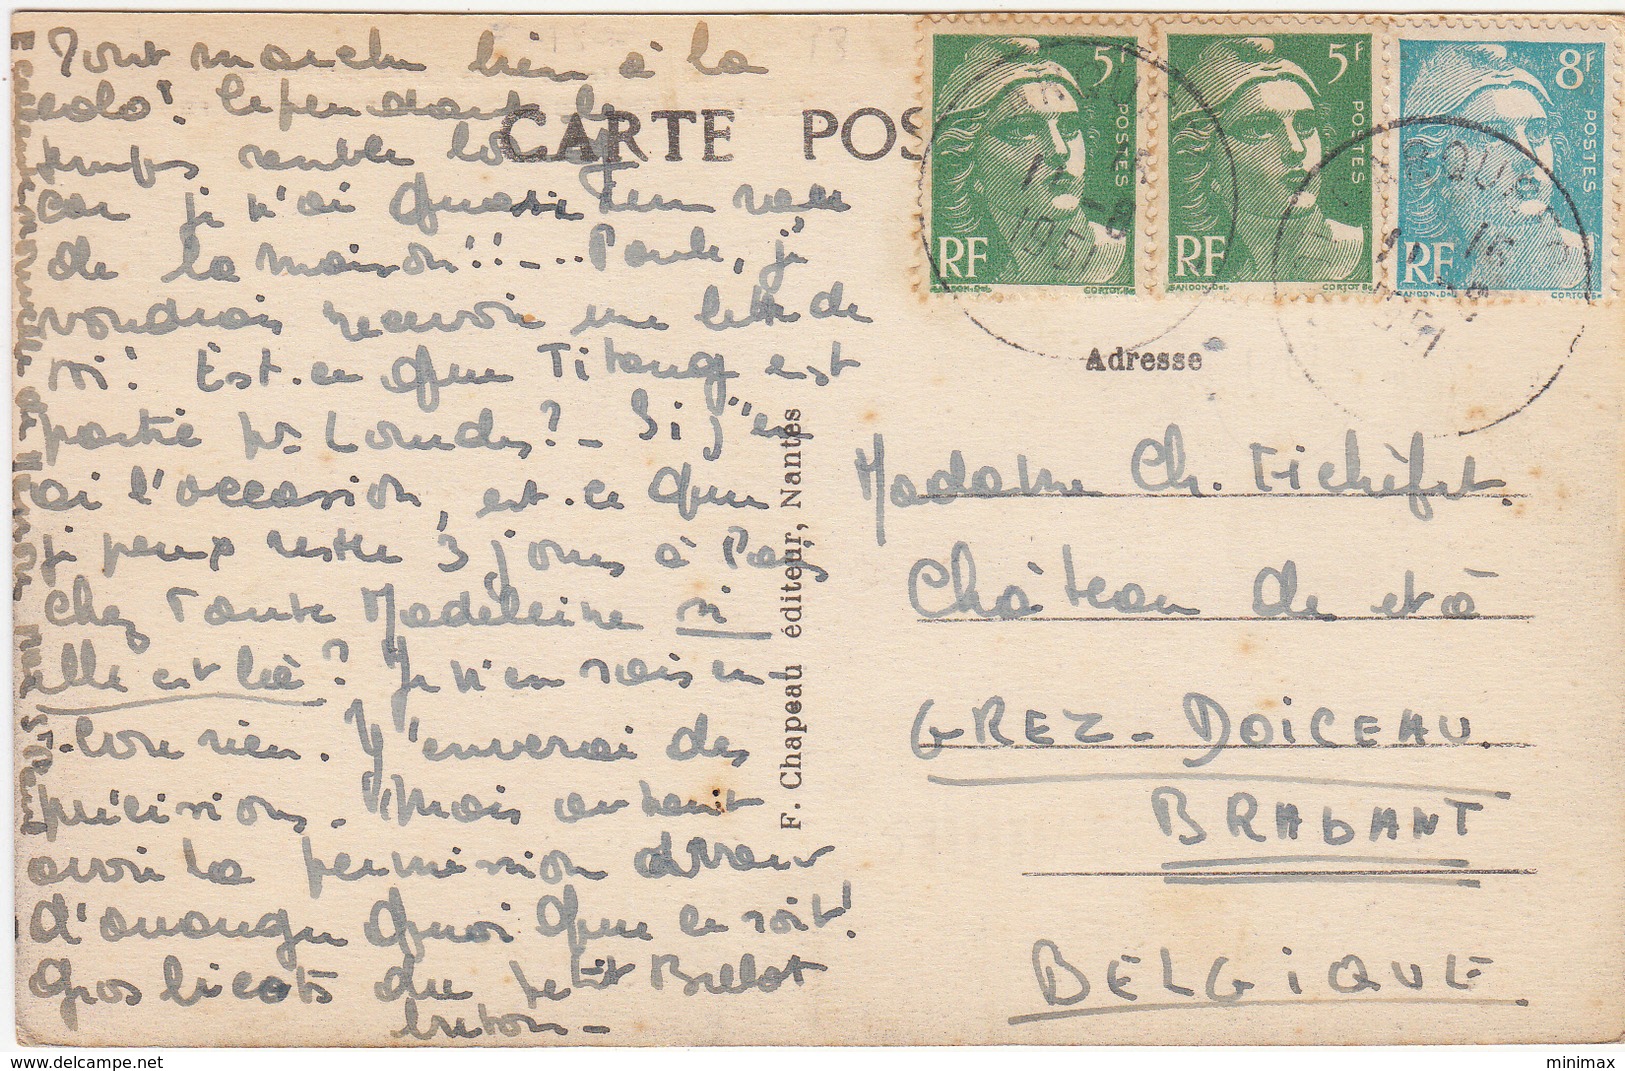 Tout marche bien à la
colo! Cependant le
temps semble long
car je n'ai quasi rien reçu
de la maison!!-... Paule, je
voudrais recevoir une lettre de
toi! Est-ce que Titang est
partie pr Lourdes? - Si j'en
ai l'occasion, est-ce que
je peux rester 3 jours à Paris
chez Tante Madeleine si
elle est là? Je n'en sais en-
core rien. J'enverrai des
précisions. Mais autant
avoir la permission avant
d'arranger quoi que ce soit!
Gros bécots du petit Bulot
breton -
CARTE POS
F. Chapeau éditeur, Nantes
5F
POSTES
RF
GANDON.Del.
CORTOT
5F
POSTES
RF
GANDON.Del.
CORTOT
8F
POSTES
RF
GANDON.Del.
CORTOT
1951
Adresse
Madame Ch.
Château de
GREZ-DOICEAU.
BRABANT
BELGIQUE.
© delcampe.net
minimax